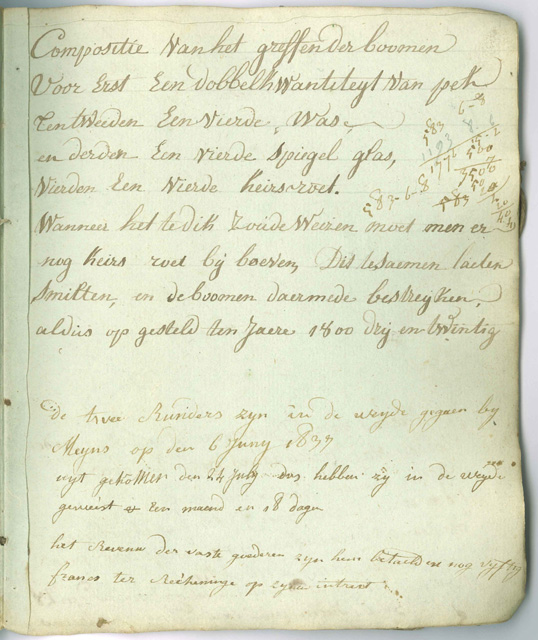 Compositie Van het greffen der boomen
Voor Erst Een dobbel kwantiteyt Van pek
Tentweeden Een vierde Was,
en derden Een vierde Spiegel glas,
Vierden Een vierde keirsroet.
Wanneer het te dik Zoude Weizen moet men er
nog keirs roet bij boeven, Dit te saemen laeten
Smilten, en de boomen daermede bestreyken,
aldus op gesteld ten Jaere 1800 drij en twintig
6-8
583
583-6-8
583
de twee Runders zyn in de weyde gegaen by
Meyns op den 6 Juny 1837
uyt gekommen den 24 July dus hebben zij in de weyde
geweest Een maend en 18 dagen
het Revenu der vaste goederen zyn hun betaeld en nog vyftig
francs ter Recheninge op zynen intrest